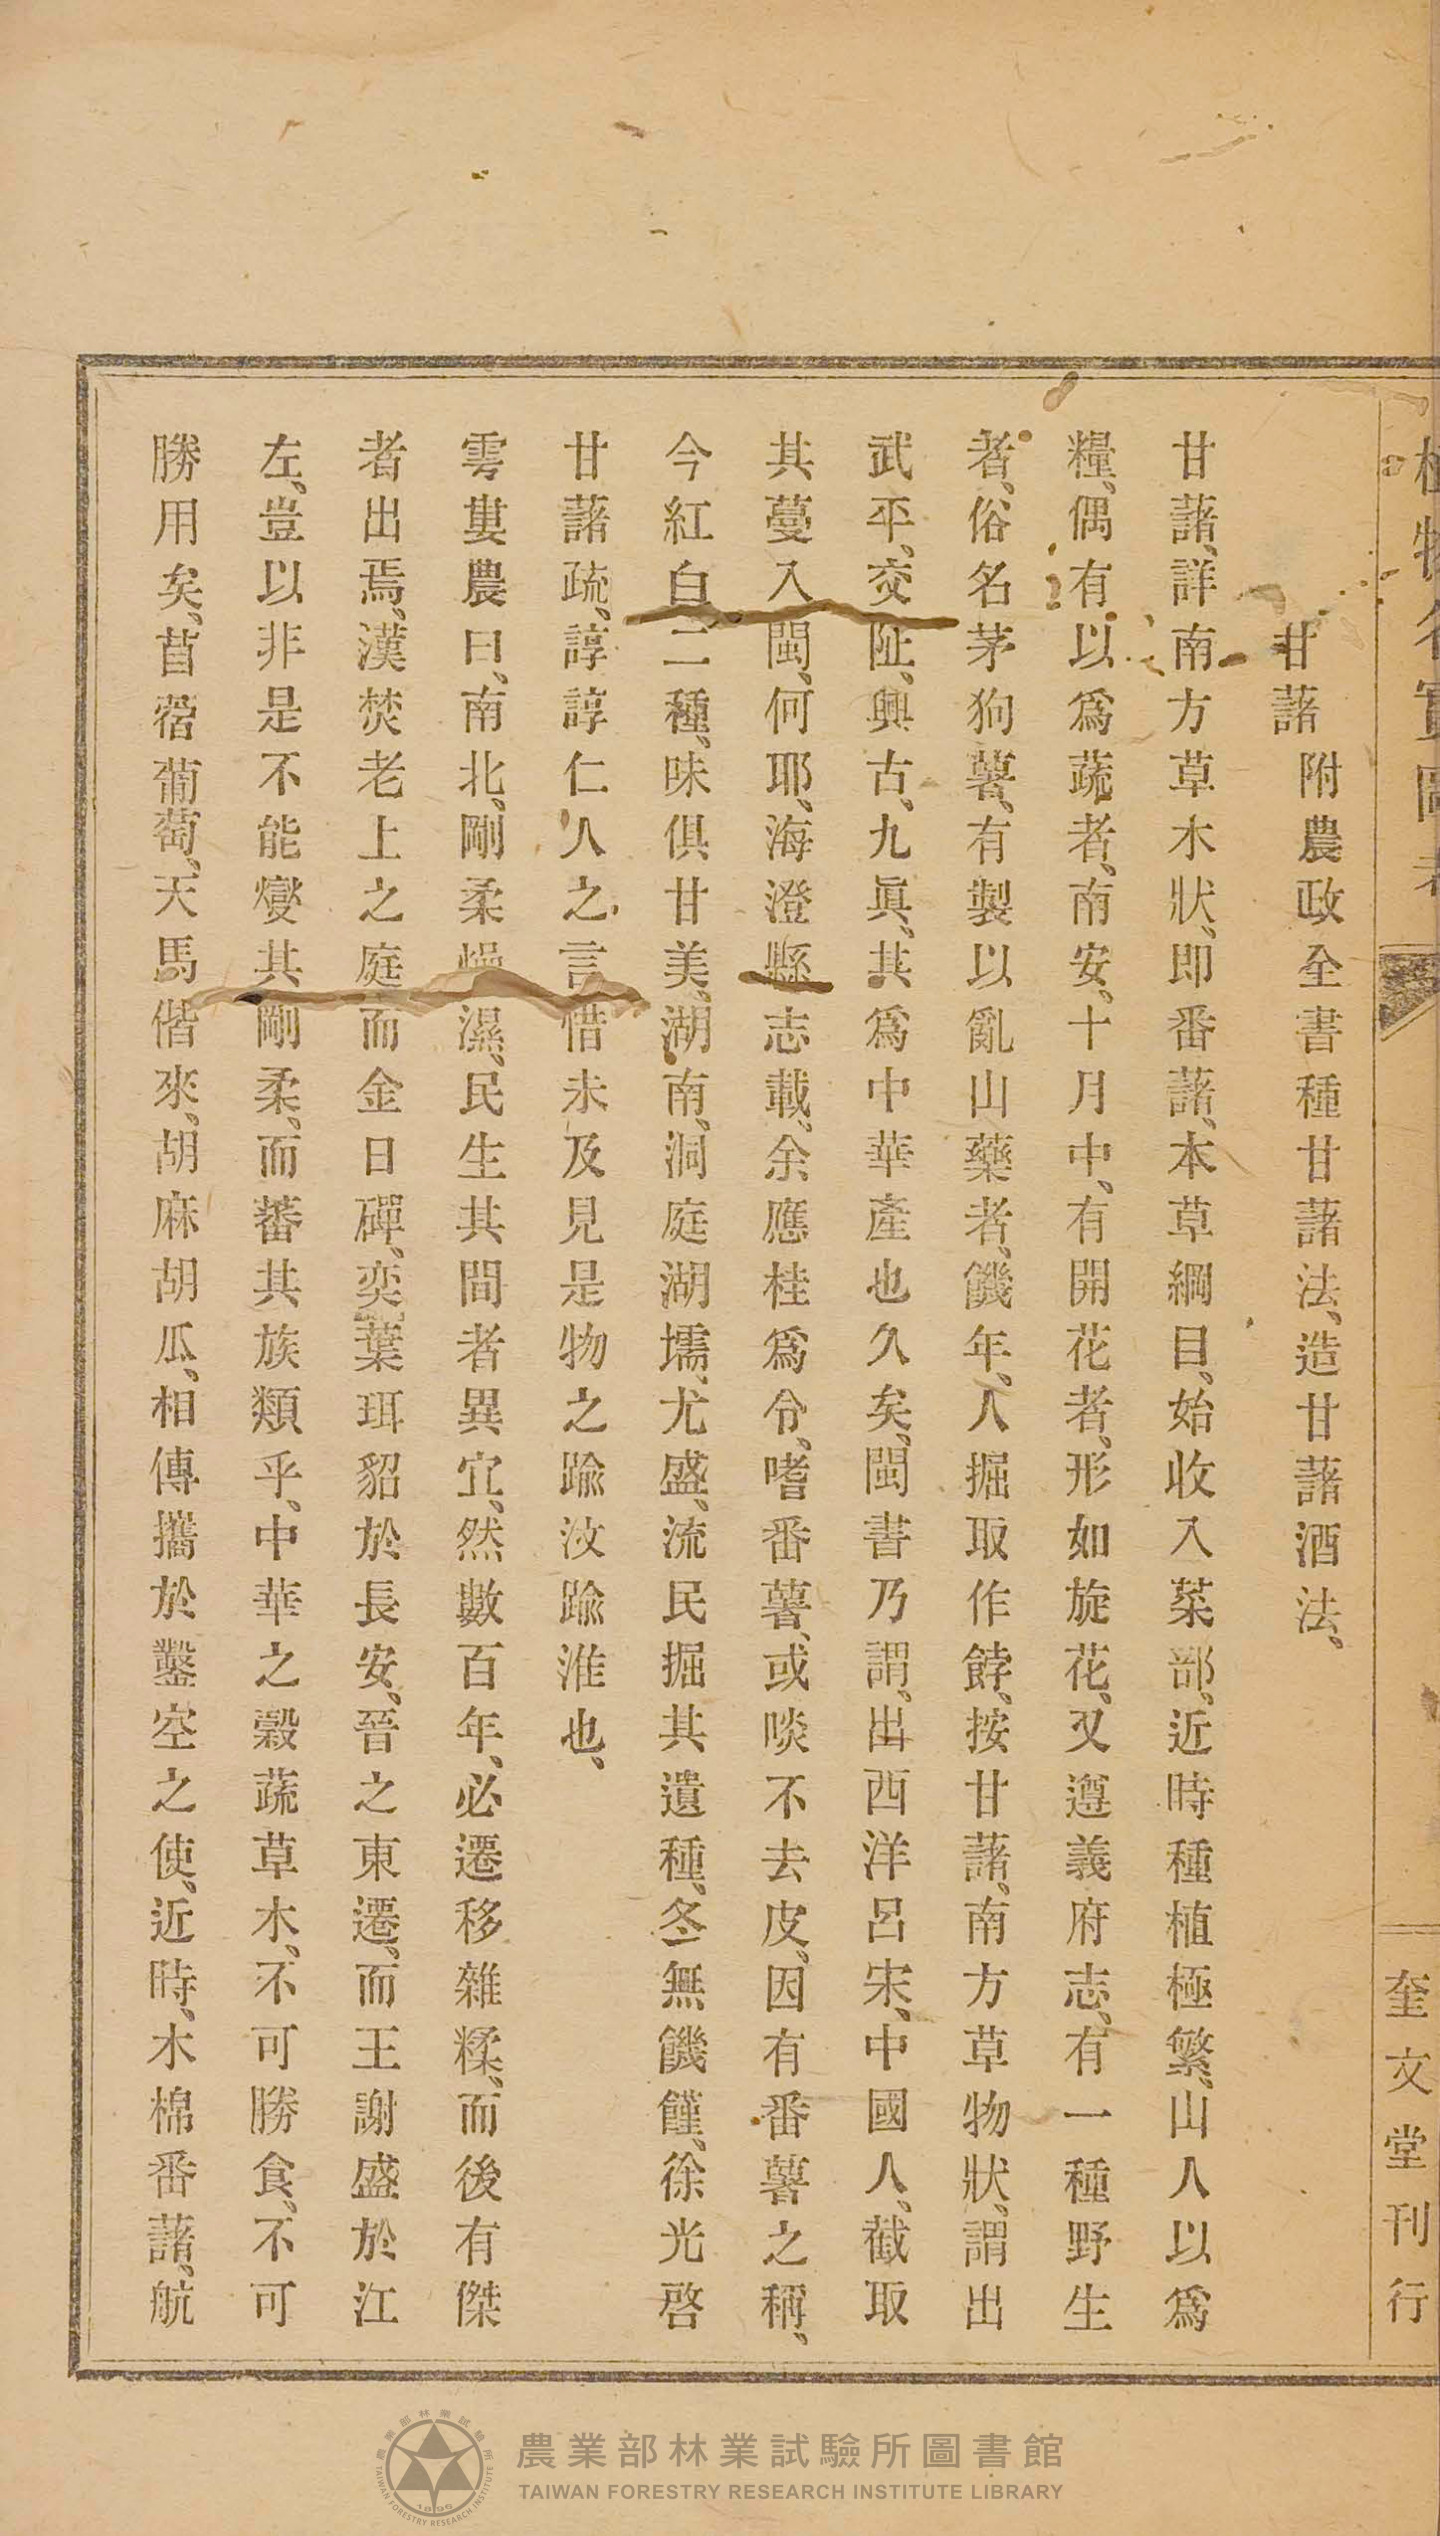 植物名實圖考
奎文堂刊行
甘藷 附農政全書種甘藷法、造甘藷酒法、
甘藷、詳南方草木狀、卽番藷、本草綱目、始收入菜部、近時種植極繁、山人以爲
糧、偶有以爲蔬者、南安、十月中、有開花者、形如旋花、又遵義府志、有一種野生
者、俗名茅狗薯、有製以亂山藥者、饑年、人掘取作餑、按甘藷、南方草物狀、謂出
武平、交阯、興古、九眞、其爲中華產也久矣、閩書乃謂、出西洋呂宋、中國人、截取
其蔓入閩、何耶、海澄縣志載、余應桂爲令、嗜番薯、或啖不去皮、因有番薯之稱、
今紅白二種、味俱甘美、湖南、洞庭湖壖、尤盛、流民掘其遺種、冬無饑饉、徐光啓
甘藷疏、諄諄仁人之言、惜未及見是物之踰汶踰淮也、
雩婁農曰、南北、剛柔燥濕、民生其間者異宜、然數百年、必遷移雜糅、而後有傑
者出焉、漢焚老上之庭而金日磾、奕葉珥貂於長安、晉之東遷、而王謝盛於江
左、豈以非是不能變其剛柔、而蕃其族類乎、中華之穀蔬草木、不可勝食、不可
勝用矣、苜蓿葡萄、天馬偕來、胡麻胡瓜、相傳攜於鑿空之使、近時、木棉番藷、航
農業部林業試驗所圖書館
TAIWAN FORESTRY RESEARCH INSTITUTE LIBRARY
農業部林業試驗所
TAIWAN FORESTRY RESEARCH INSTITUTE
1896